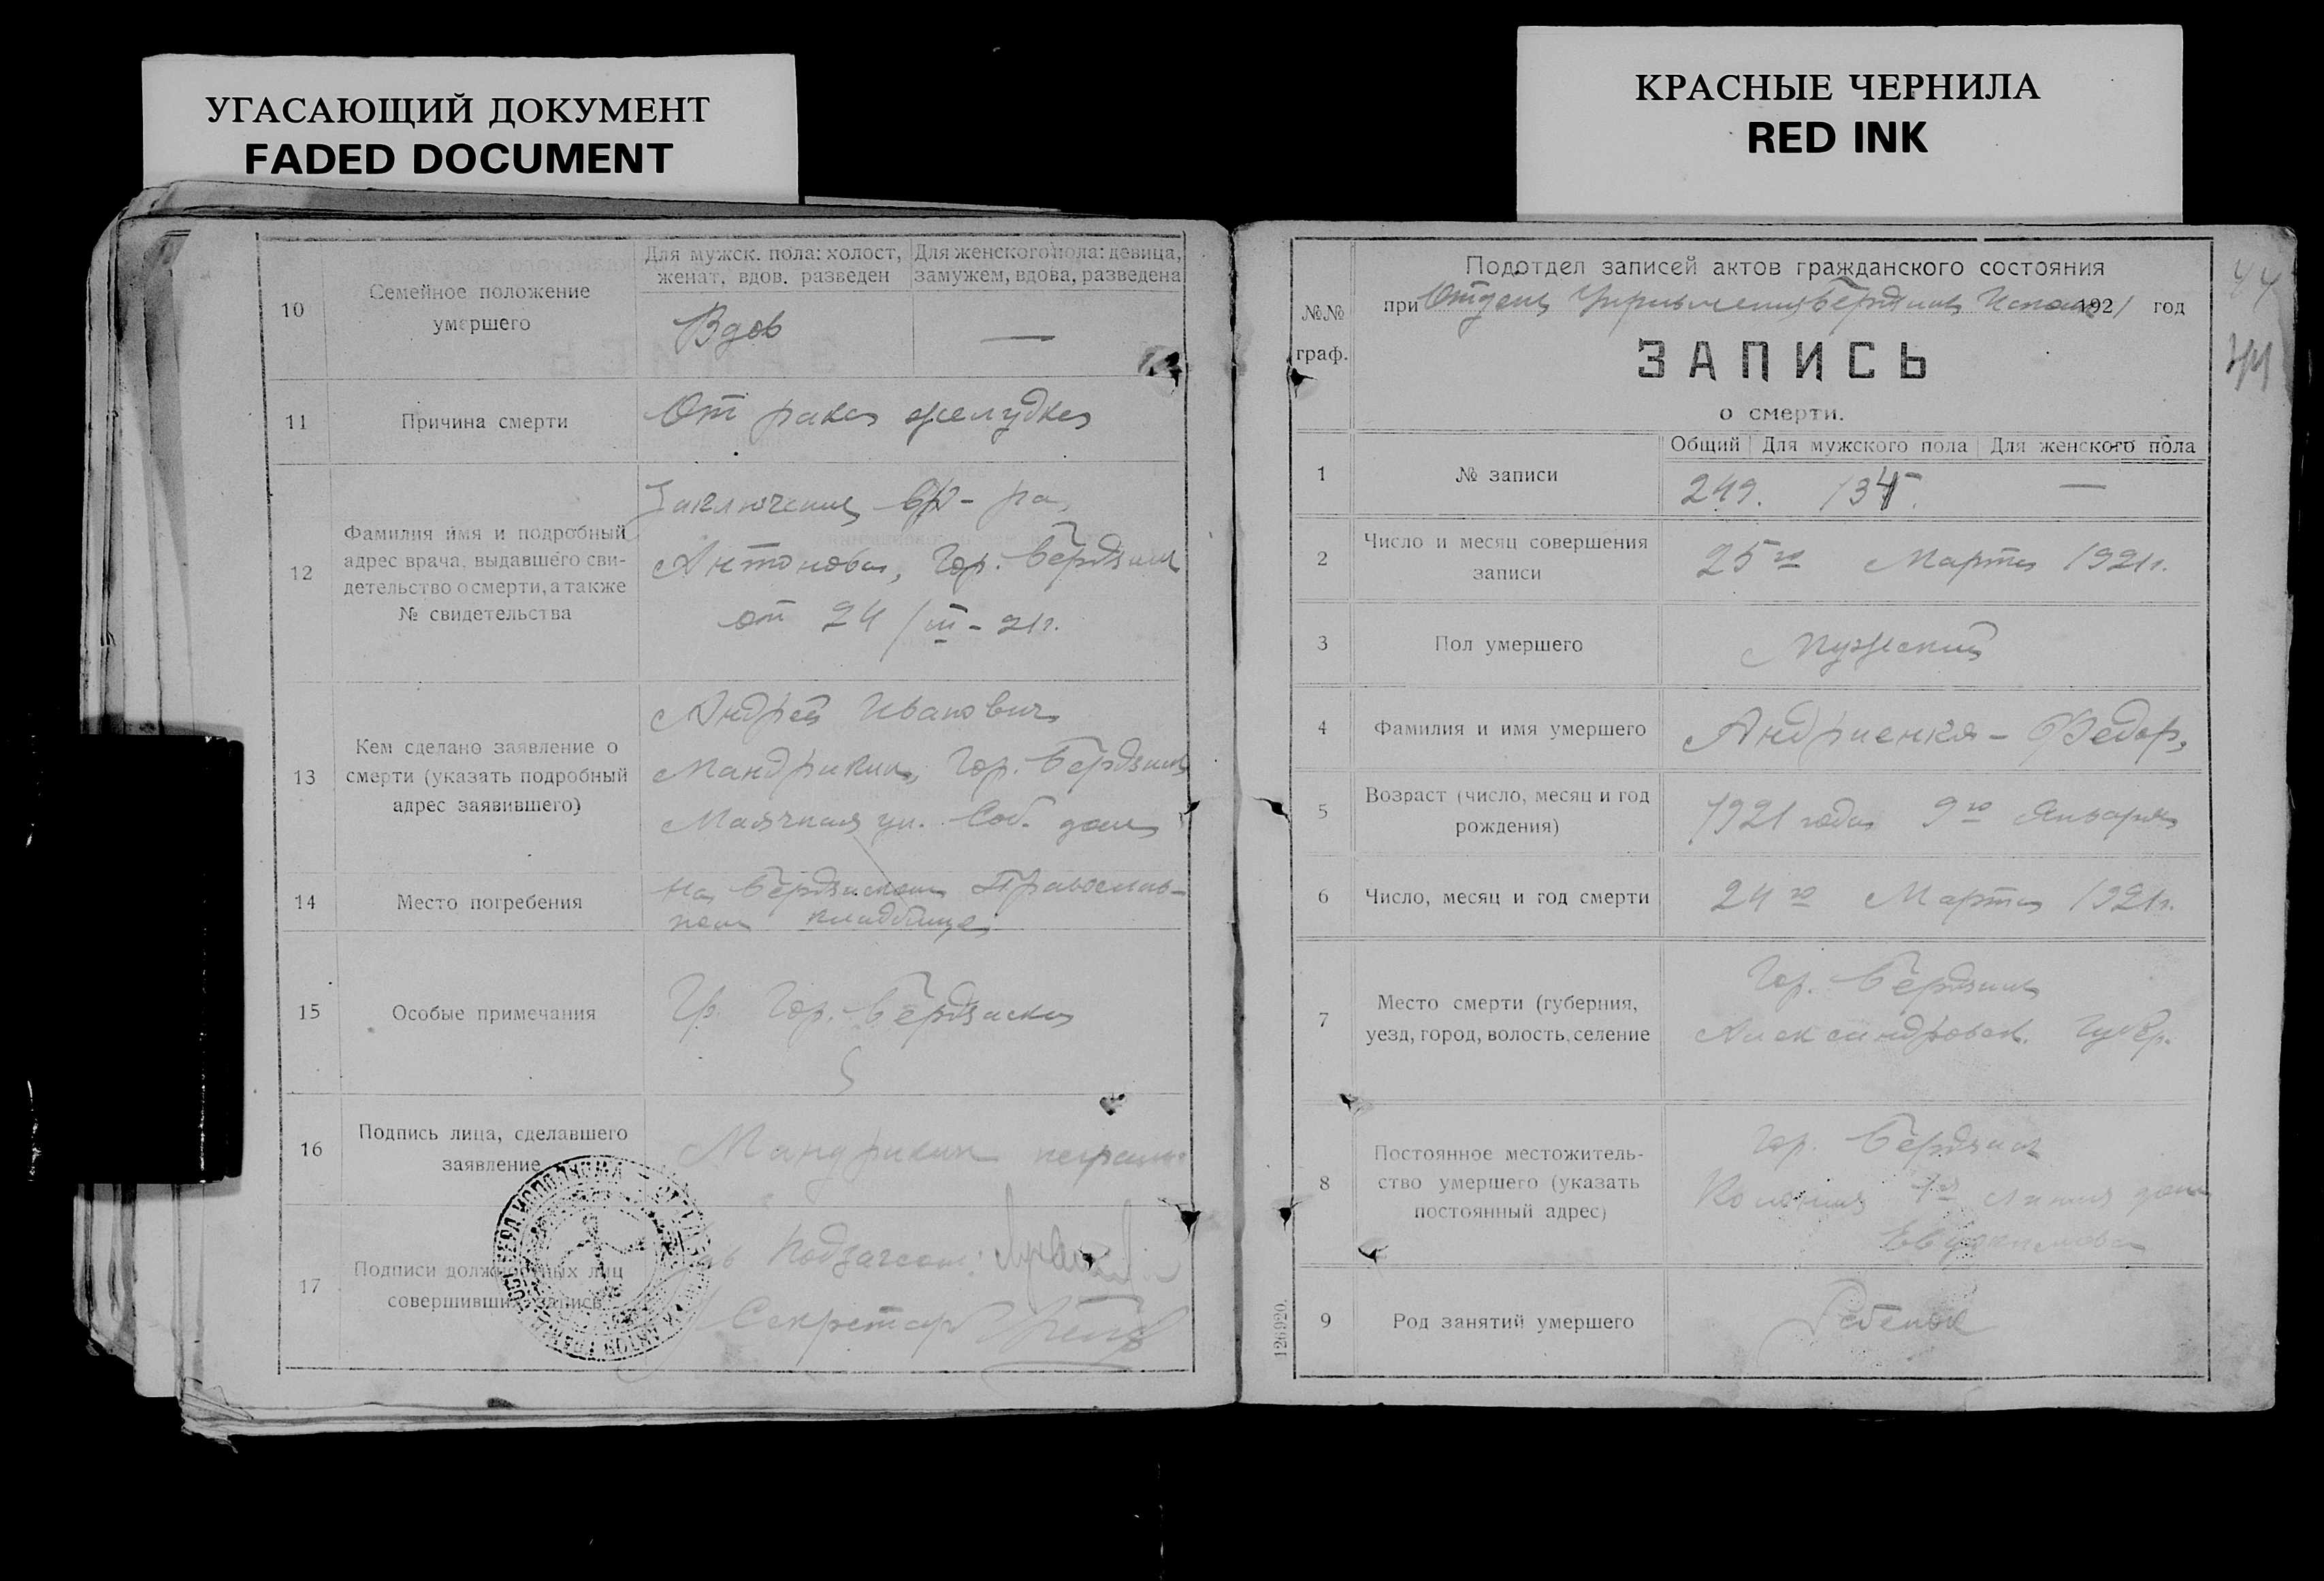 УГАСАЮЩИЙ ДОКУМЕНТ
FADED DOCUMENT
КРАСНЫЕ ЧЕРНИЛА
RED INK
10
Семейное положение
умершего
Для мужск. пола: холост,
женат, вдов. разведен
Для женского пола: девица,
замужем, вдова, разведена
Вдов
—
11
Причина смерти
От рака желудка
12
Фамилия имя и подробный
адрес врача, выдавшего сви-
детельство о смерти, а также
№ свидетельства
Заключения вр-ра
Антонова, Гор. Бердянск
от 24/III-21г.
13
Кем сделано заявление о
смерти (указать подробный
адрес заявившего)
Андрей Иванович
Мандрыкин, Гор. Бердянск
Маячная ул. Соб. дом
14
Место погребения
На Бердянском Православ-
ном кладбище
15
Особые примечания
Гр. Гор. Бердянска
16
Подпись лица, сделавшего
заявление
Мандрыкин неграм.
17
Подписи должностных лиц
совершивших запись
Подзагсом
Секретарь
44
№№
граф.
Подотдел записей актов гражданского состояния
при Отделе Управления Бердянск Исполк 1921 год
ЗАПИСЬ
о смерти.
1
№ записи
Общий
Для мужского пола
Для женского пола
249.
135.
—
2
Число и месяц совершения
записи
25го Марта 1921г.
3
Пол умершего
Мужеский
4
Фамилия и имя умершего
Андриенко - Федор,
5
Возраст (число, месяц и год
рождения)
1921 года 9го Января
6
Число, месяц и год смерти
24го Марта 1921г.
7
Место смерти (губерния,
уезд, город, волость, селение
Гор. Бердянск
Александровск. Губер.
8
Постоянное местожитель-
ство умершего (указать
постоянный адрес)
Гор. Бердянск
Колония 1я линия дом
9
Род занятий умершего
Ребенок
126920.